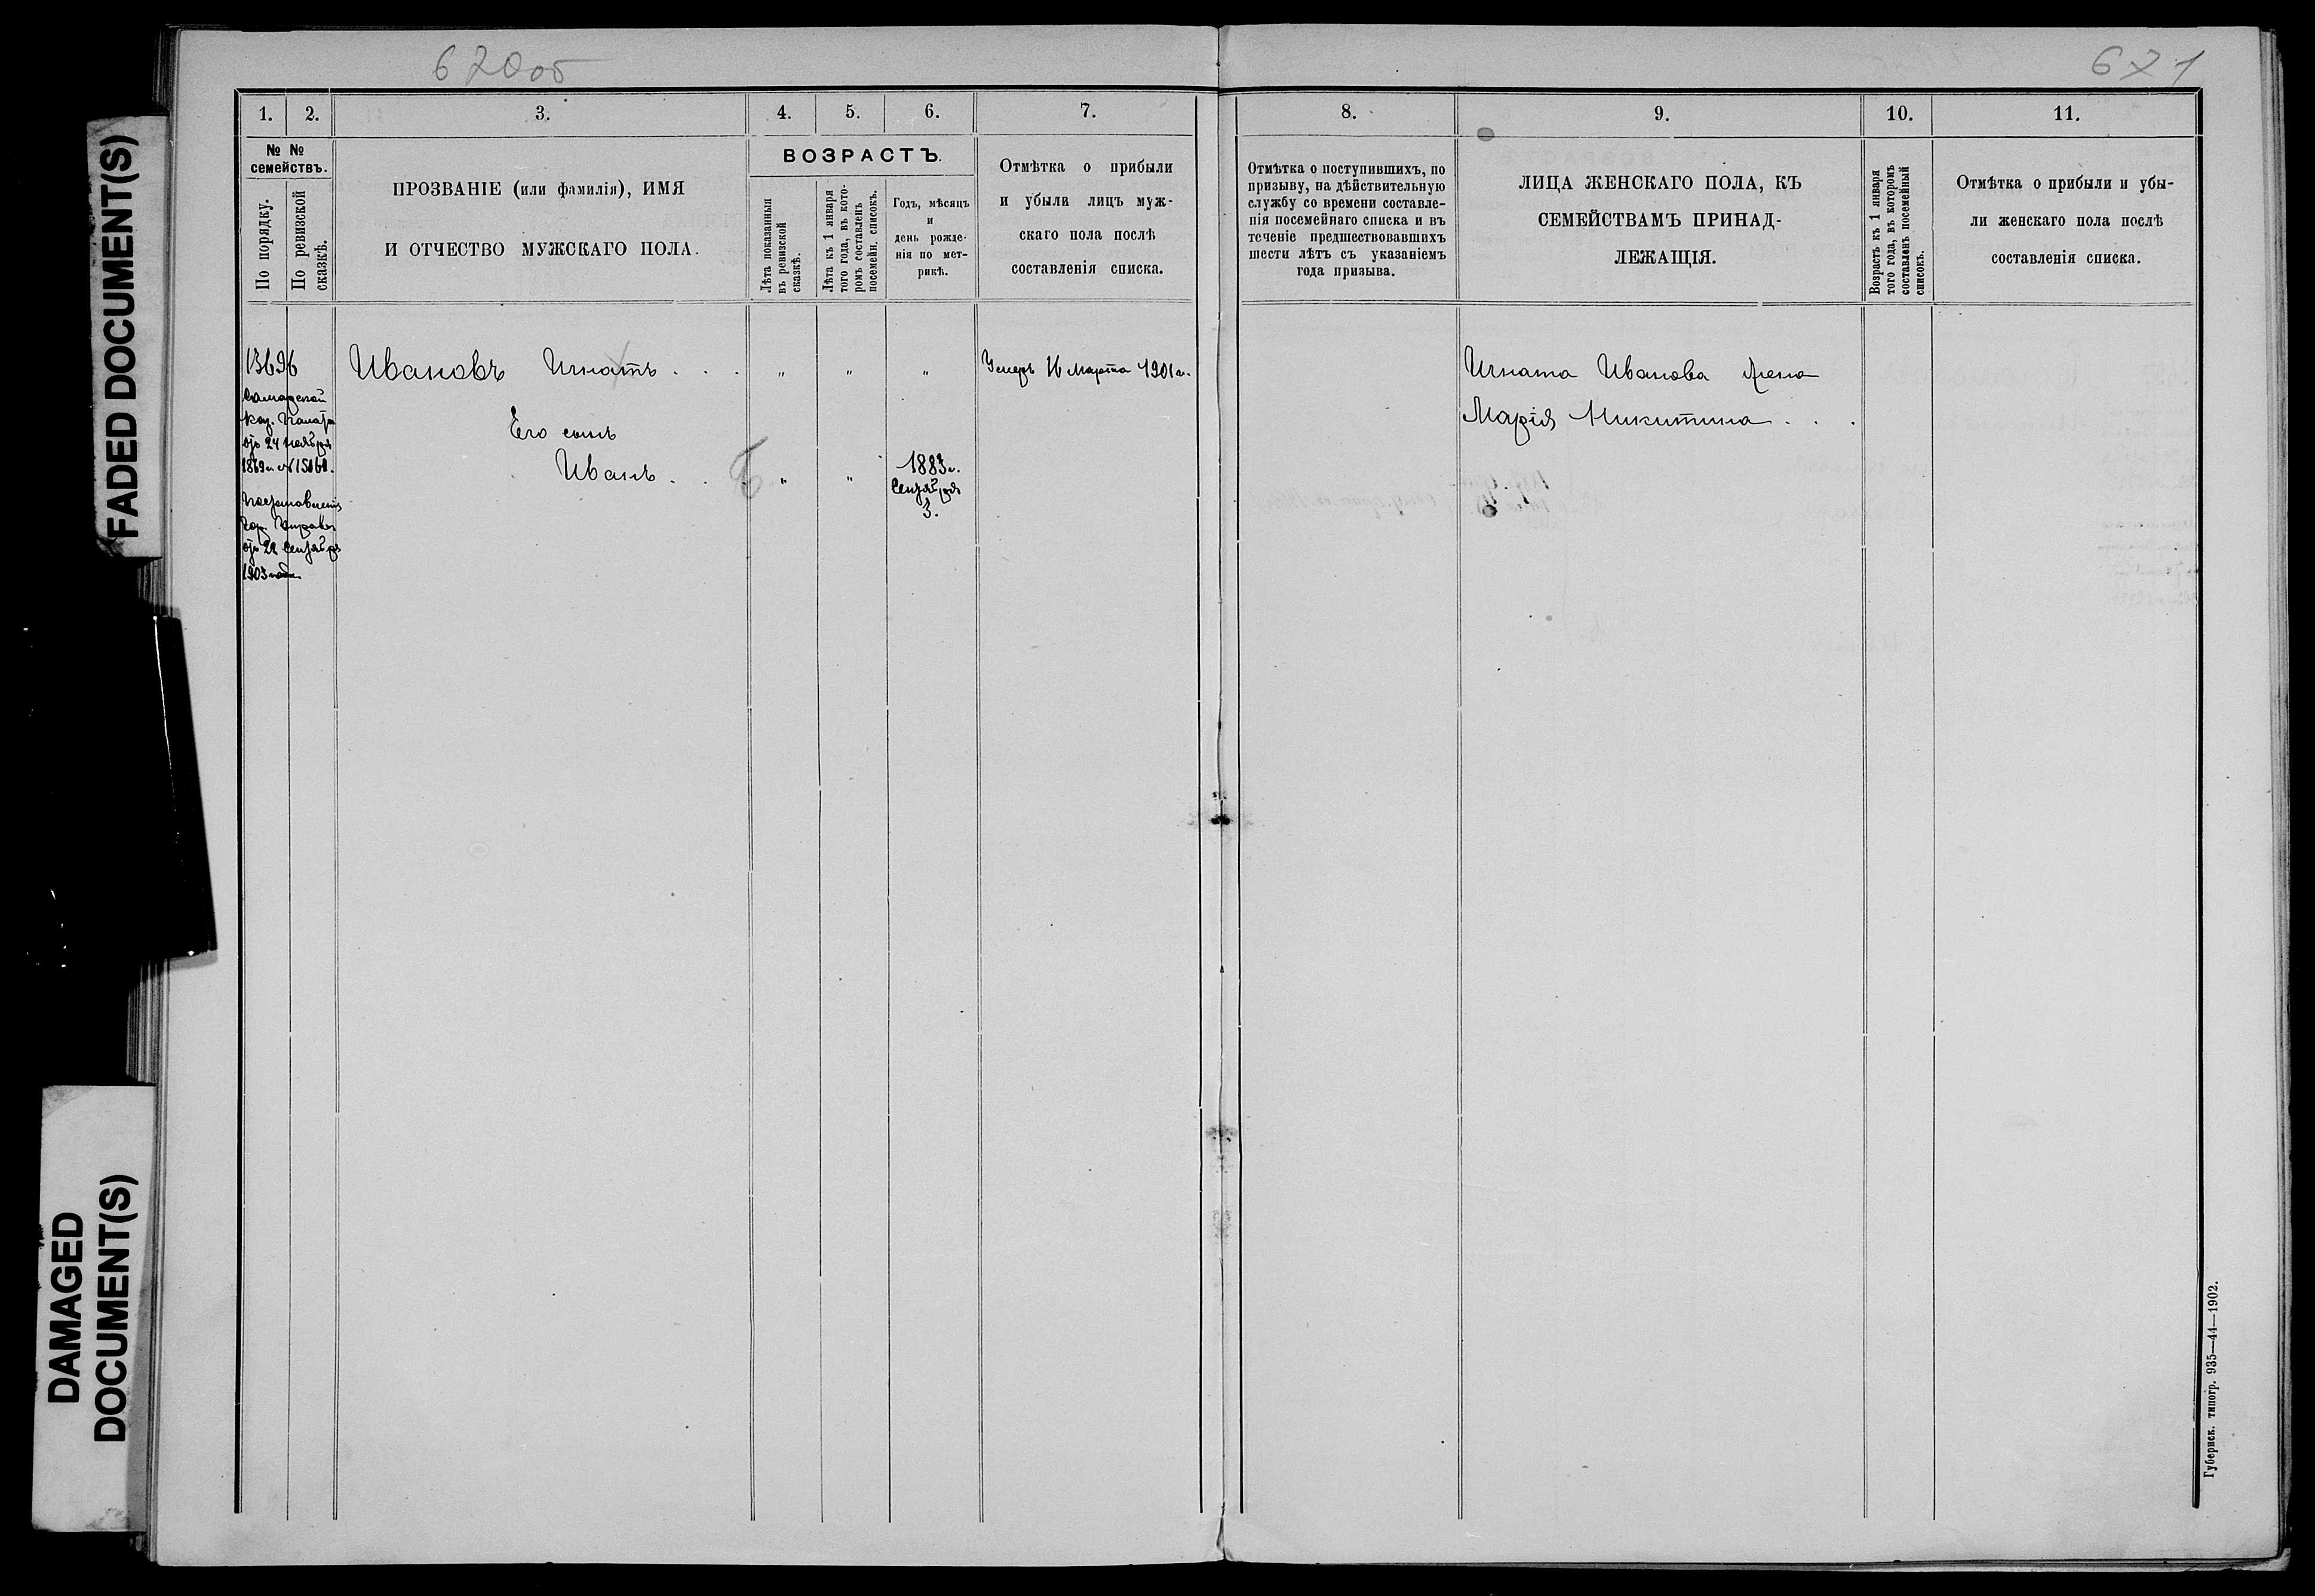 620 об
671
FADED DOCUMENT(S)
DAMAGED
DOCUMENT(S)
1. 2. 3. 4. 5. 6. 7.
№ №
семействъ.
По порядку.
По ревизской
сказкѣ.
ПРОЗВАНІЕ (или фамилія), ИМЯ
И ОТЧЕСТВО МУЖСКАГО ПОЛА.
ВОЗРАСТЪ.
Лѣта показанныя
въ ревизской
сказкѣ.
Лѣта къ 1 января
того года, въ кото-
ромъ составленъ
посемейн. списокъ.
Годъ, мѣсяцъ
и
день рожде-
нія по мет-
рикѣ.
Отмѣтка о прибыли
и убыли лицъ муж-
скаго пола послѣ
составленія списка.
13696
Самарской
Каз. Палаты
отъ 24 Ноября
1869 г. № 15161.
Постановленіе
Гор. Управы
отъ 22 Сентября
1903 года.
Ивановъ Игнатъ . . . " " " Умеръ 16 Марта 1901 г.
Его сынъ
Иванъ . . . " "
1883 г.
Сентября
3.
8. 9. 10. 11.
Отмѣтка о поступившихъ, по
призыву, на дѣйствительную
службу со времени составле-
нія посемейнаго списка и въ
теченіе предшествовавшихъ
шести лѣтъ съ указаніемъ
года призыва.
ЛИЦА ЖЕНСКАГО ПОЛА, КЪ
СЕМЕЙСТВАМЪ ПРИНАД-
ЛЕЖАЩІЯ.
Возрастъ къ 1 января
того года, въ которомъ
составленъ посемейный
списокъ.
Отмѣтка о прибыли и убы-
ли женскаго пола послѣ
составленія списка.
Игната Иванова жена
Марія Никитина . . .
Губернск. типогр. 935—44—1902.